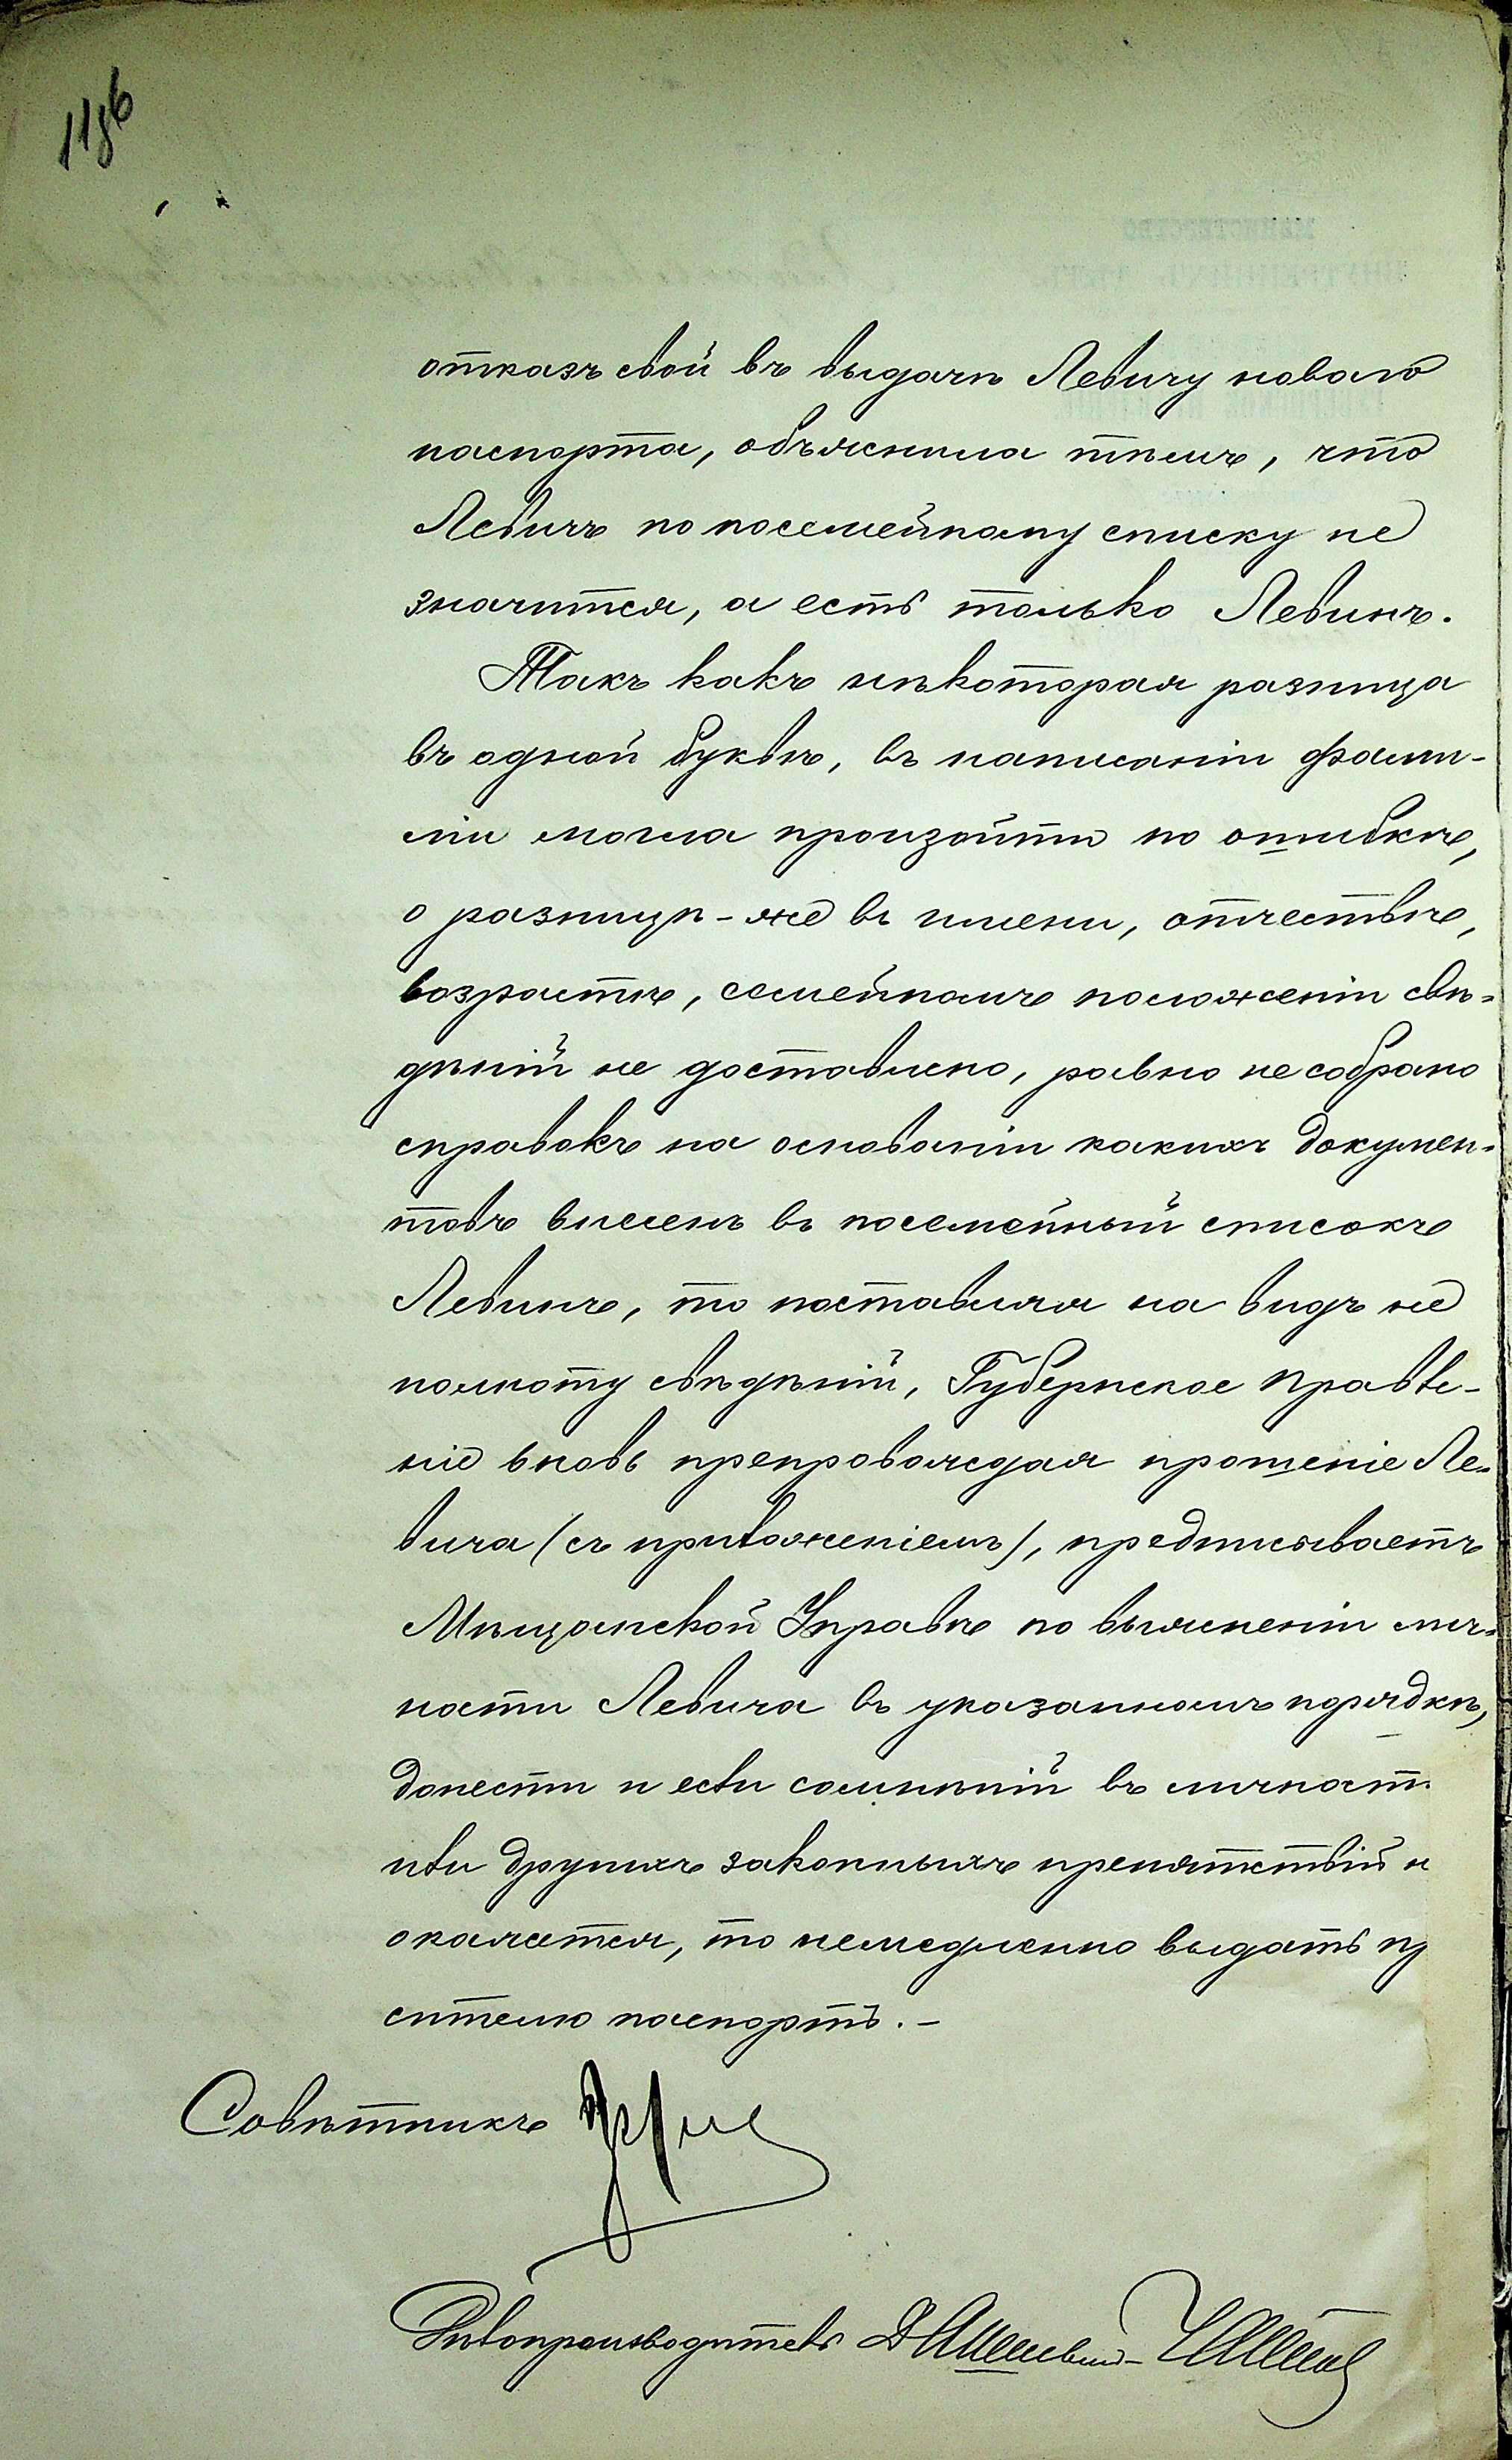 1186
отказъ свой въ выдачѣ Левичу новаго
паспорта, объяснила тѣмъ, что
Левичъ по посемейному списку не
значится, а есть только Левинъ.
Такъ какъ нѣкоторая разница
въ одной буквѣ, въ написаніи фами-
ліи могла произойти по ошибкѣ,
о разницѣ-же въ имени, отчествѣ,
возрастѣ, семейномъ положеніи свѣ-
дѣній не доставлено, равно не собрано
справокъ на основаніи какихъ докумен-
товъ внесенъ въ посемейный списокъ
Левинъ, то поставляя на видъ не
полноту свѣдѣній, Губернское Правле-
ніе вновь препровождая прошеніе Ле-
вича (съ приложеніемъ), предписываетъ
Мѣщанской Управѣ по выясненіи лич-
ности Левича въ указанномъ порядкѣ,
донести и если сомнѣній въ личност
или другихъ законныхъ препятствій н
окажется, то немедленно выдать пр
сителю паспортъ.-
Совѣтникъ
Дѣлопроизводитель